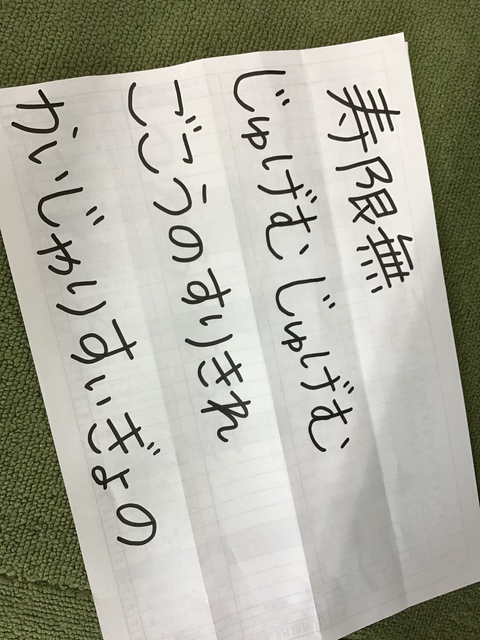 寿限無
じゅげむじゅげむ
ごこうのすりきれ
かいじゃりすいぎょの